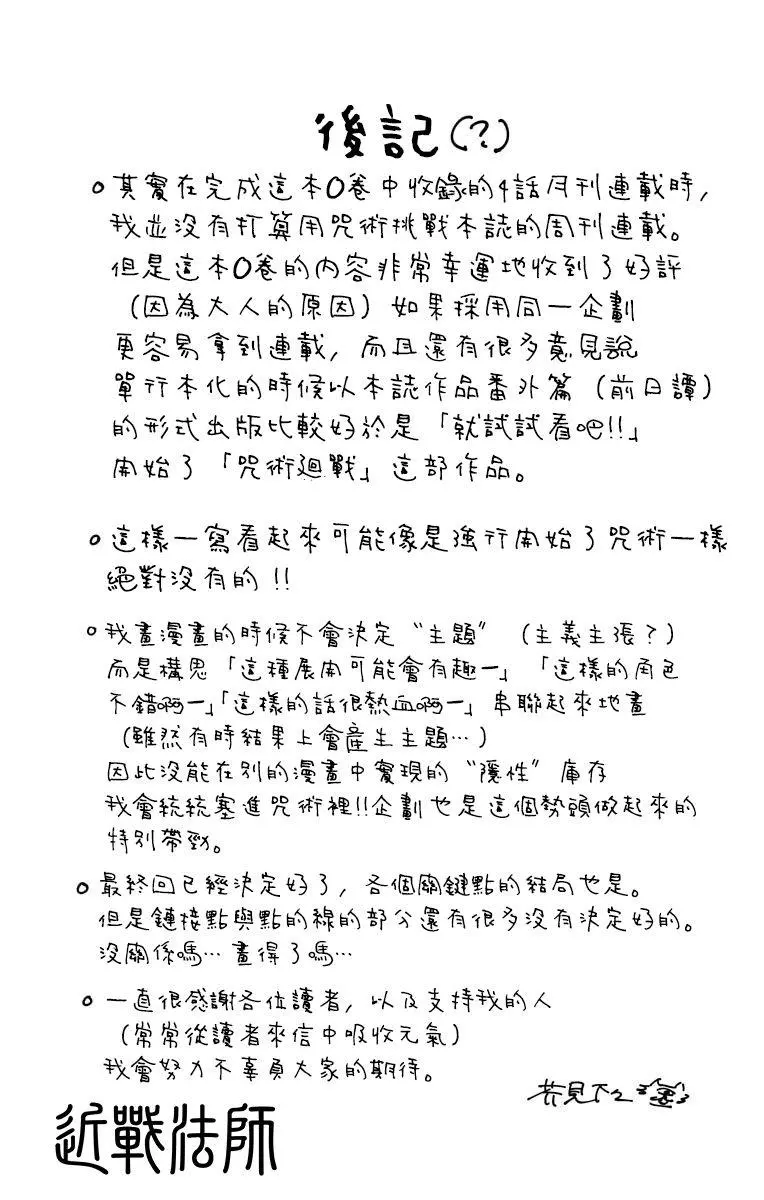 後記(?)
○其實在完成這本0卷中收錄的4話月刊連載時,
我並沒有打算用咒術挑戰本誌的周刊連載。
但是這本0卷的內容非常幸運地收到了好評
(因為大人的原因)如果採用同一企劃
更容易拿到連載,而且還有很多意見說
單行本化的時候以本誌作品番外篇(前日譚)
的形式出版比較好於是「就試試看吧!!」
開始了「咒術廻戰」這部作品。
○這樣一寫看起來可能像是強行開始了咒術一樣
絕對沒有的!!
○我畫漫畫的時候不會決定“主題”(主義主張?)
而是構思「這種展開可能會有趣ー」「這樣的角色
不錯啊ー」「這樣的話很熱血啊ー」串聯起來地畫
(雖然有時結果上會產生主題…)
因此沒能在別的漫畫中實現的“隱性”庫存
我會統統塞進咒術裡!!企劃也是這個勢頭做起來的
特別帶勁。
○最終回已經決定好了,各個關鍵點的結局也是。
但是鏈接點與點的線的部分還有很多沒有決定好的。
沒關係嗎…畫得了嗎…
○一直很感謝各位讀者,以及支持我的人
(常常從讀者來信中吸收元氣)
我會努力不辜負大家的期待。
芥見下々
近戰法師